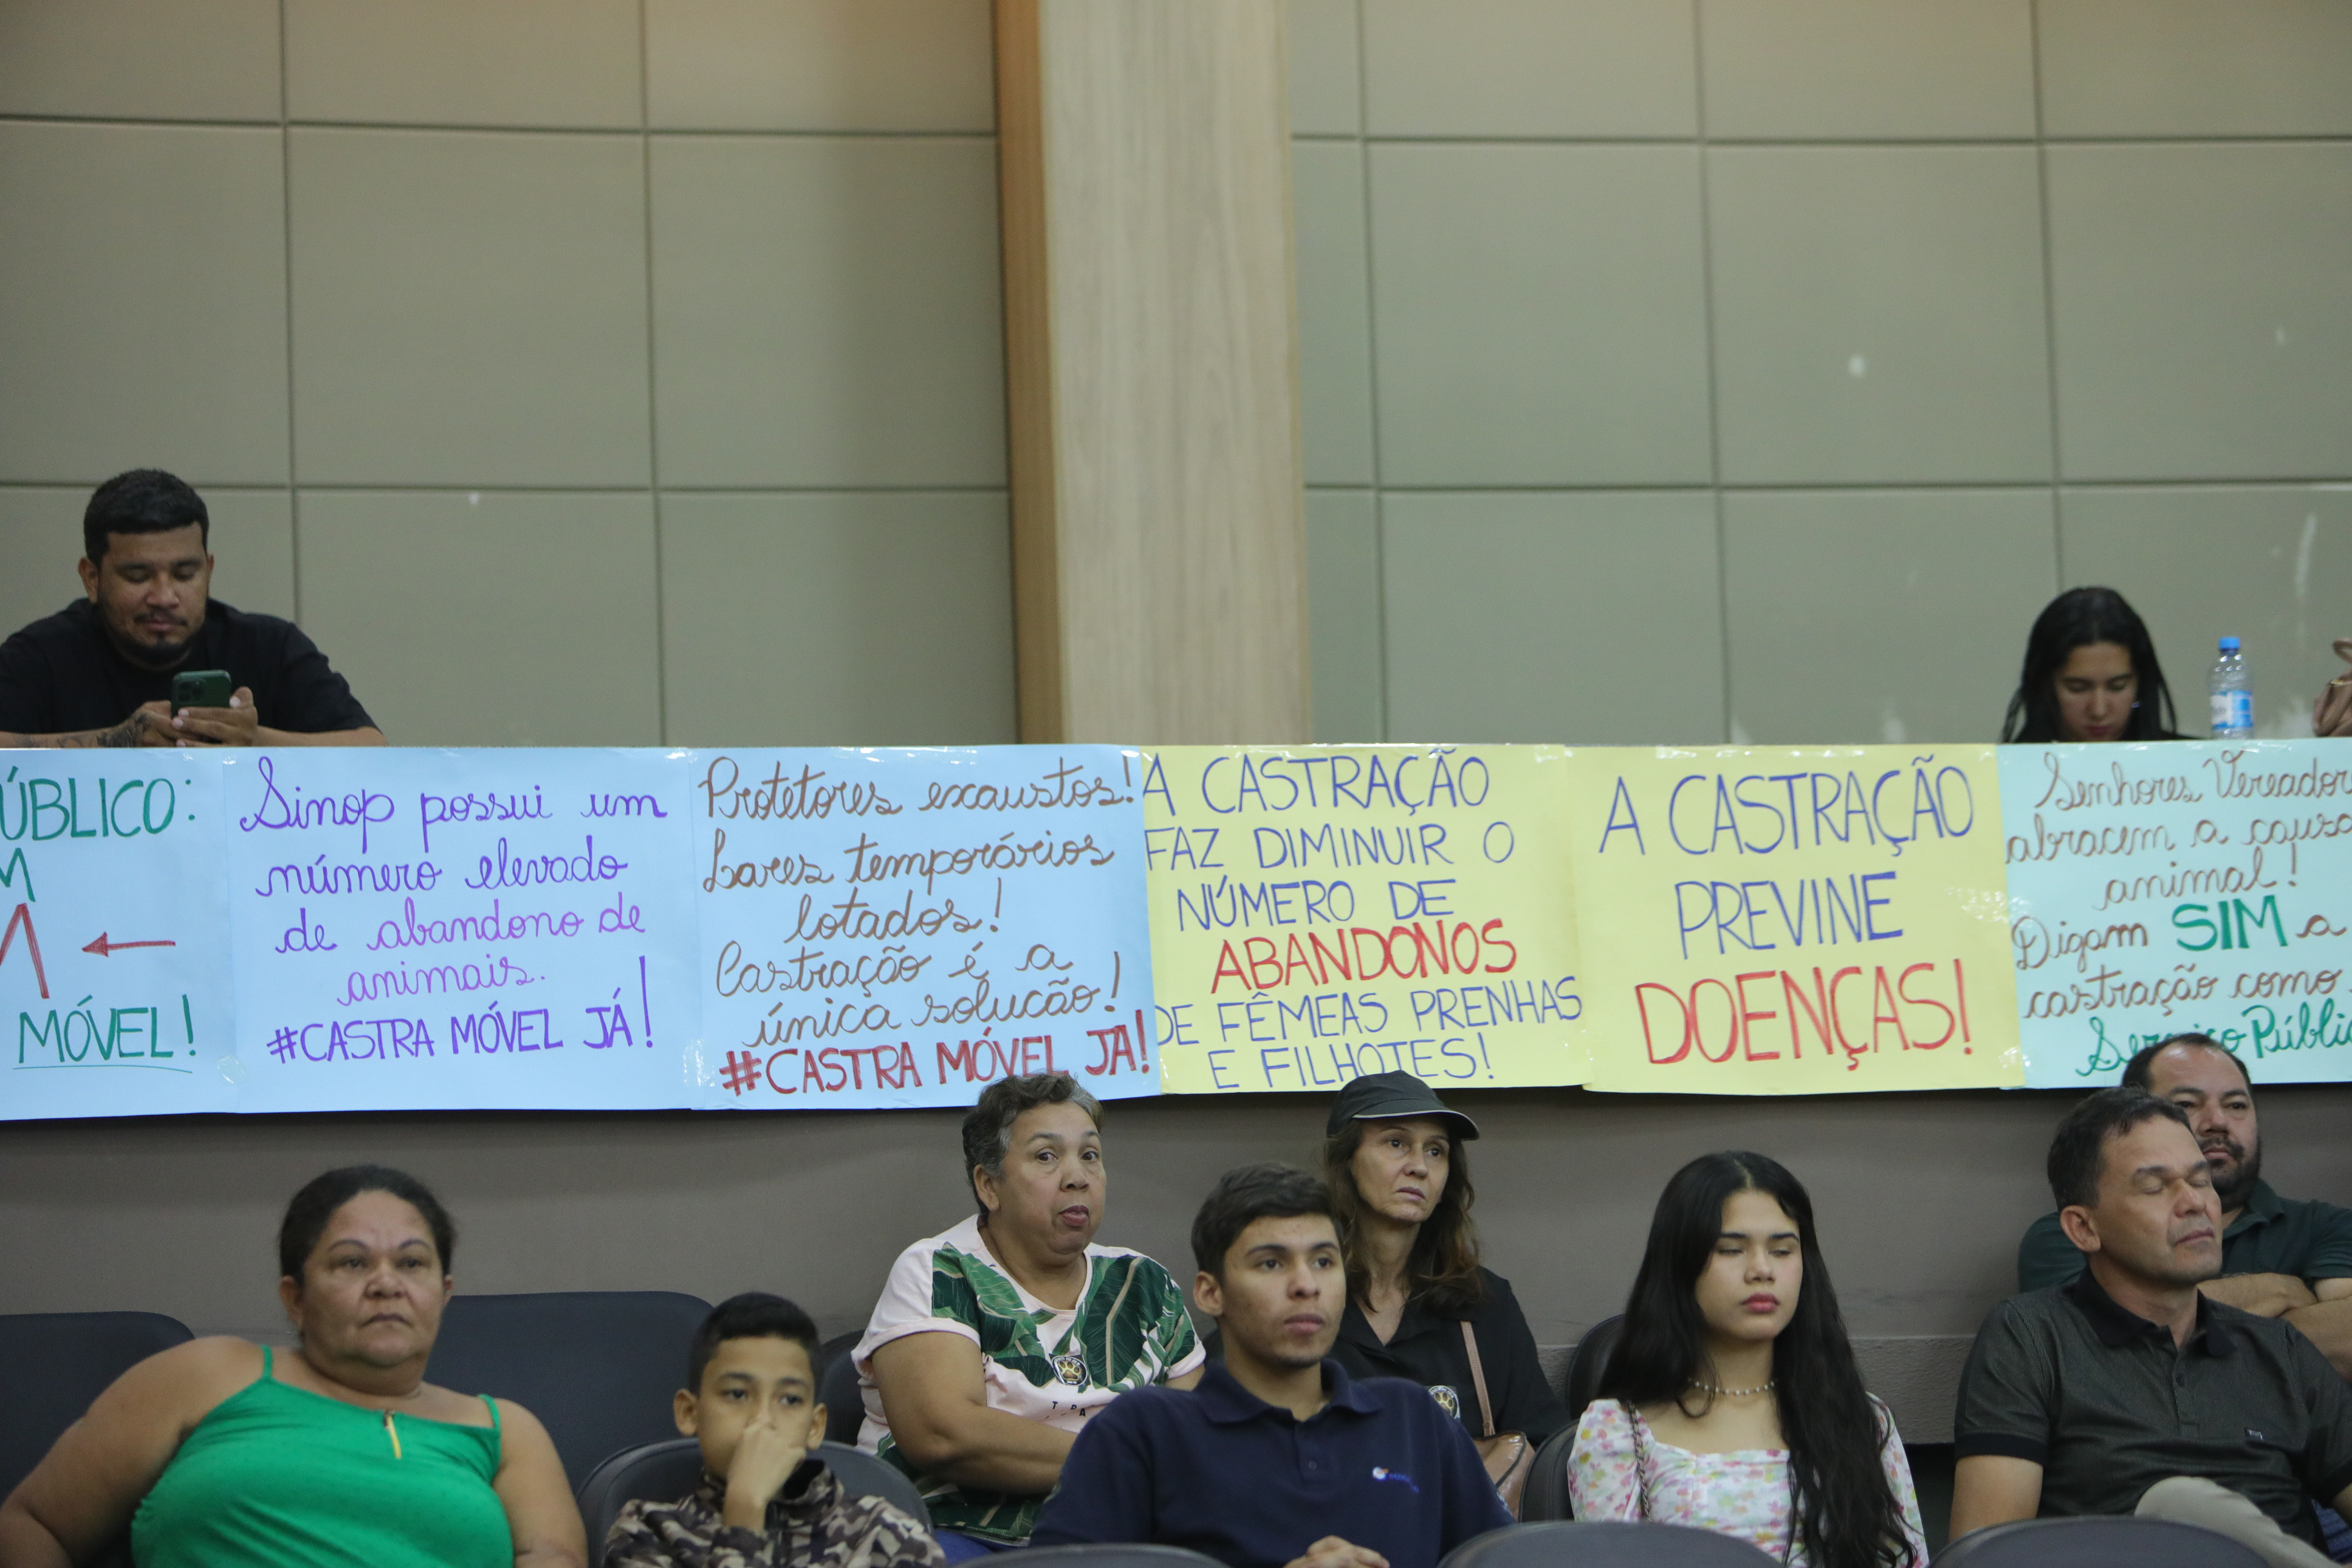 ÚBLICO:
M
MÓVEL!
Sinop possui um
número elevado
de abandono de
animais.
#CASTRA MÓVEL JÁ!
Protetores exaustos!
Lares temporários
lotados!
Castração é a
única solucão!
#CASTRA MÓVEL JA!
A CASTRAÇÃO
FAZ DIMINUIR O
NÚMERO DE
ABANDONOS
DE FÊMEAS PRENHAS
E FILHOTES!
A CASTRAÇÃO
PREVINE
DOENÇAS!
Senhores Vereador
abracem a causa
animal!
Digam SIM a
castração como
Serviço Públi